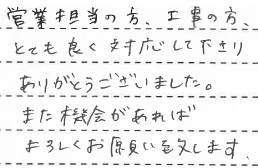 営業担当の方、工事の方、
とても良く対応して下さり
ありがとうございました。
また機会があれば
よろしくお願い致します。